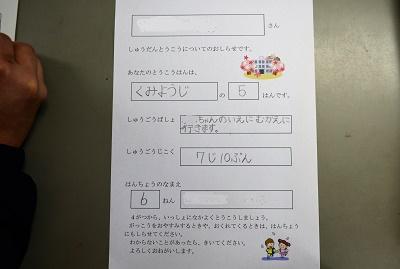 さん
しゅうだんとうこうについてのおしらせです。
あなたのとうこうはんは、
くみようじ の 5 はんです。
しゅうごうばしょ ちゃんのいえに むかえに
行きます。
しゅうごうじこく 7じ10ぷん
はんちょうのなまえ
6 ねん
4がつから、いっしょになかよくとうこうしましょう。
がっこうをおやすみするときや、おくれてくるときは、はんちょう
にもしらせてください。
わからないことがあったら、きいてください。
よろしくおねがいします。